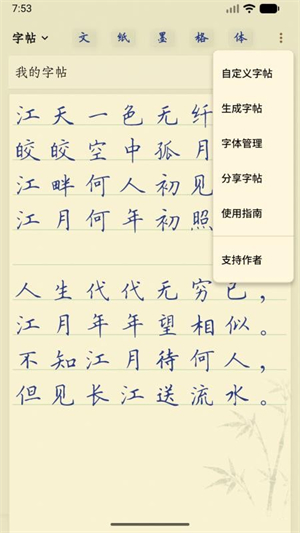 7:53
字帖 文 纸 墨 格 体
我的字帖
江天一色无纤
皎皎空中孤月
江畔何人初见
江月何年初照
人生代代无穷已，
江月年年望相似。
不知江月待何人，
但见长江送流水。
自定义字帖
生成字帖
字体管理
分享字帖
使用指南
支持作者